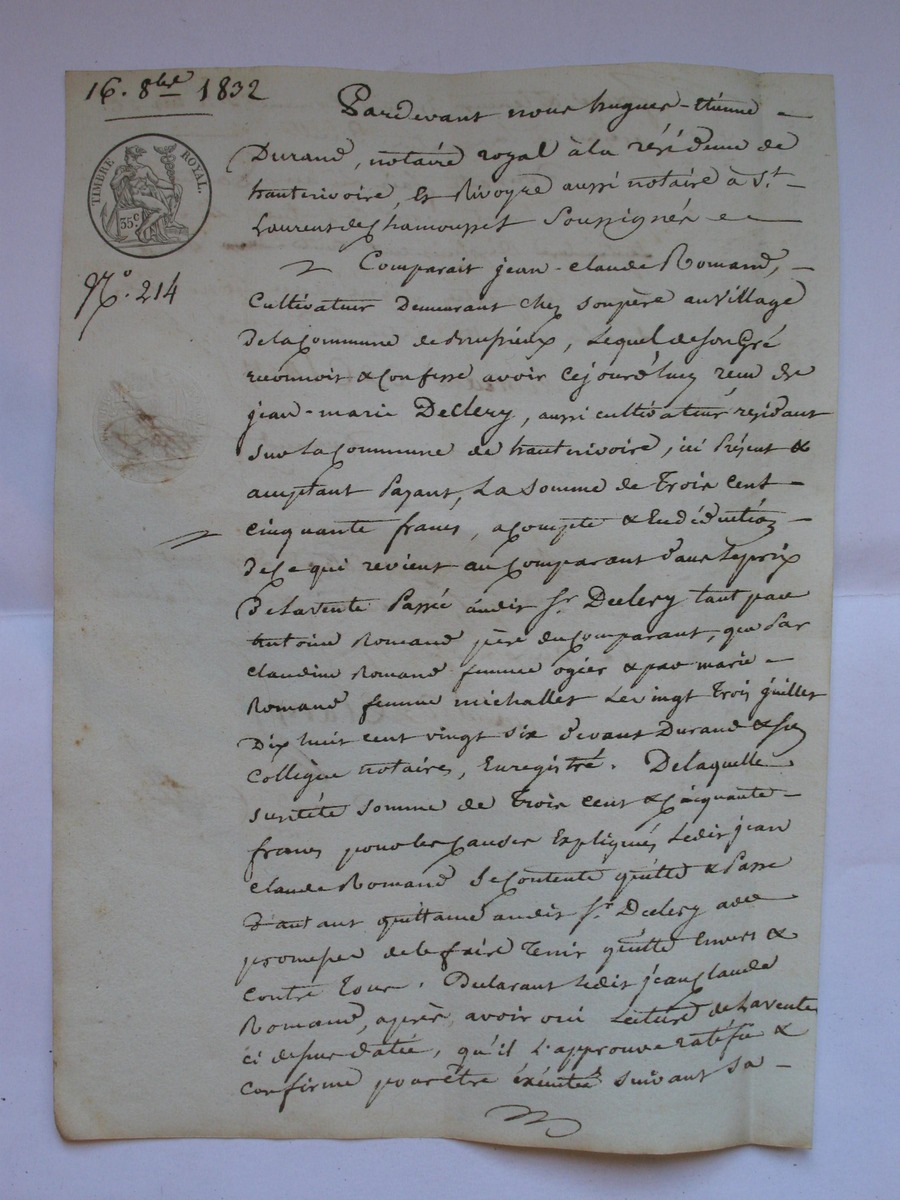 16. 8bre 1832
TIMBRE ROYAL.
35 c
N.o 214
Pardevant nous hugues-étienne
Durand, notaire royal à la résidence de
hauterivoire, et Rivoyre aussi notaire à St.
Laurent de Chamousset Soussignés
Comparait jean-claude Romand,
Cultivateur Demeurant chez son père au Village
de la Commune de Brussieux, Lequel de son Gré
reconnoit & Confesse avoir Cejourd'huy reçu de
jean-marie Declery, aussi cultivateur residant
sur la Commune de hauterivoire, ici Présent &
acceptant Payant, La Somme de Trois Cent
Cinquante francs, acompte & En déduction
de Ce qui revient au Comparant Dans le prix
De la vente Passée audit Sr. Declery tant par
Antoine Romand père du Comparant, que Par
claudine Romand femme ogier & par marie
Romand femme michallet Le vingt Trois juillet
Dix huit cent vingt six devant Durand & Son
Collègue notaires, Enregistré. De laquelle
susditte Somme de Trois Cent & Cinquante
francs pour les Causes Expliquées Ledit jean
Claude Romand Se Contente quitte & Passe
d'autant quittance audit Sr. Declery avec
promesse de le faire Tenir quitte Envers &
Contre Tous. Declarant Ledit jean Claude
Romand, après avoir oui Lecture de La vente
ci dessus datée, qu'il L'approuve ratifie &
confirme pour être éxécutée suivant Sa